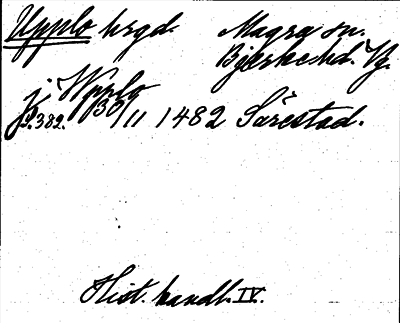 Upplo hrgd. Magra sn.
Bjerke hd. Vg.
j Upplo
s. 382. 30/11 1482 Sårestad.
Hist. handl. IV.